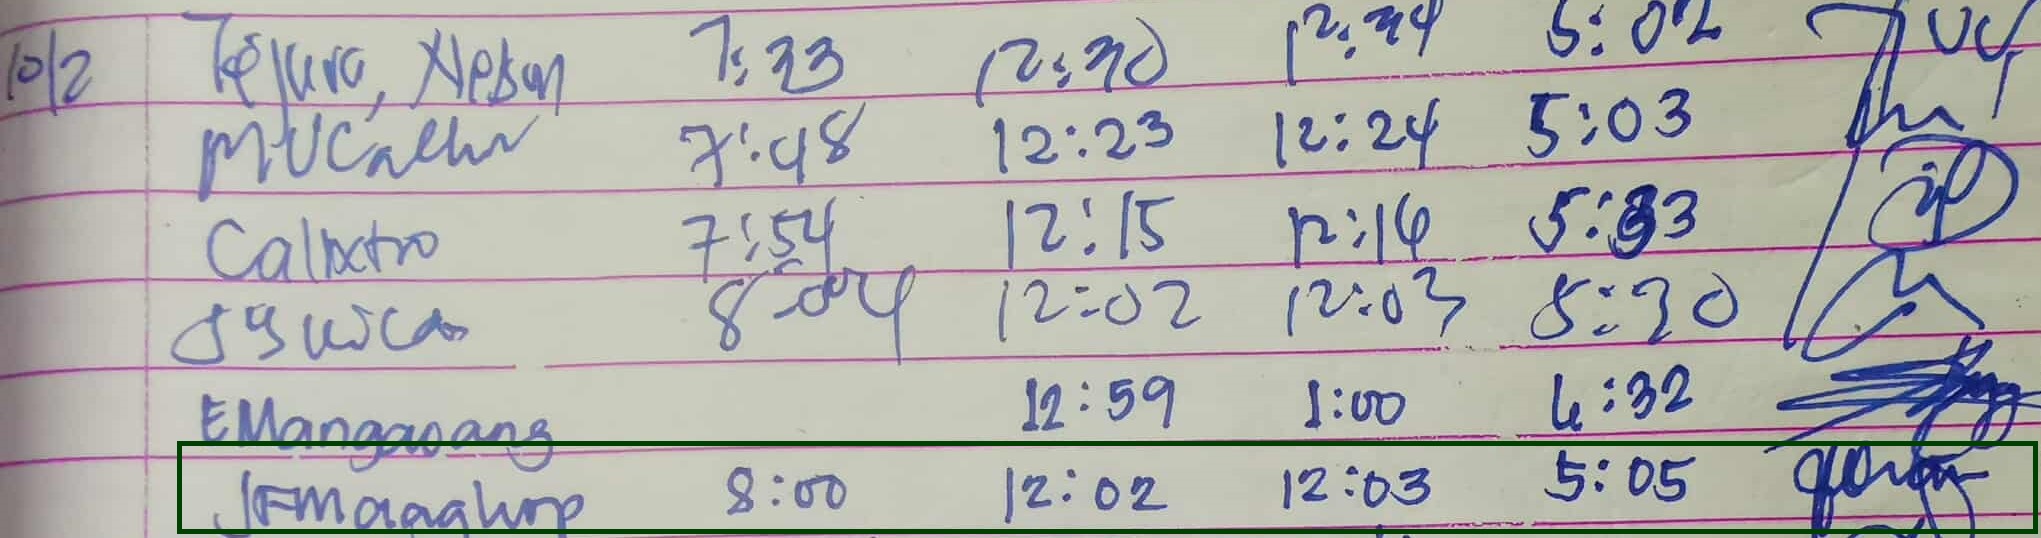 10/2 Tejuro, Nelson 7:33 12:30 12:34 5:02
MVCalln 7:48 12:23 12:24 5:03
Calixtro 7:54 12:15 12:16 5:33
8:04 12:02 12:03 5:30
EMangaoang 12:59 1:00 4:32
8:00 12:02 12:03 5:05